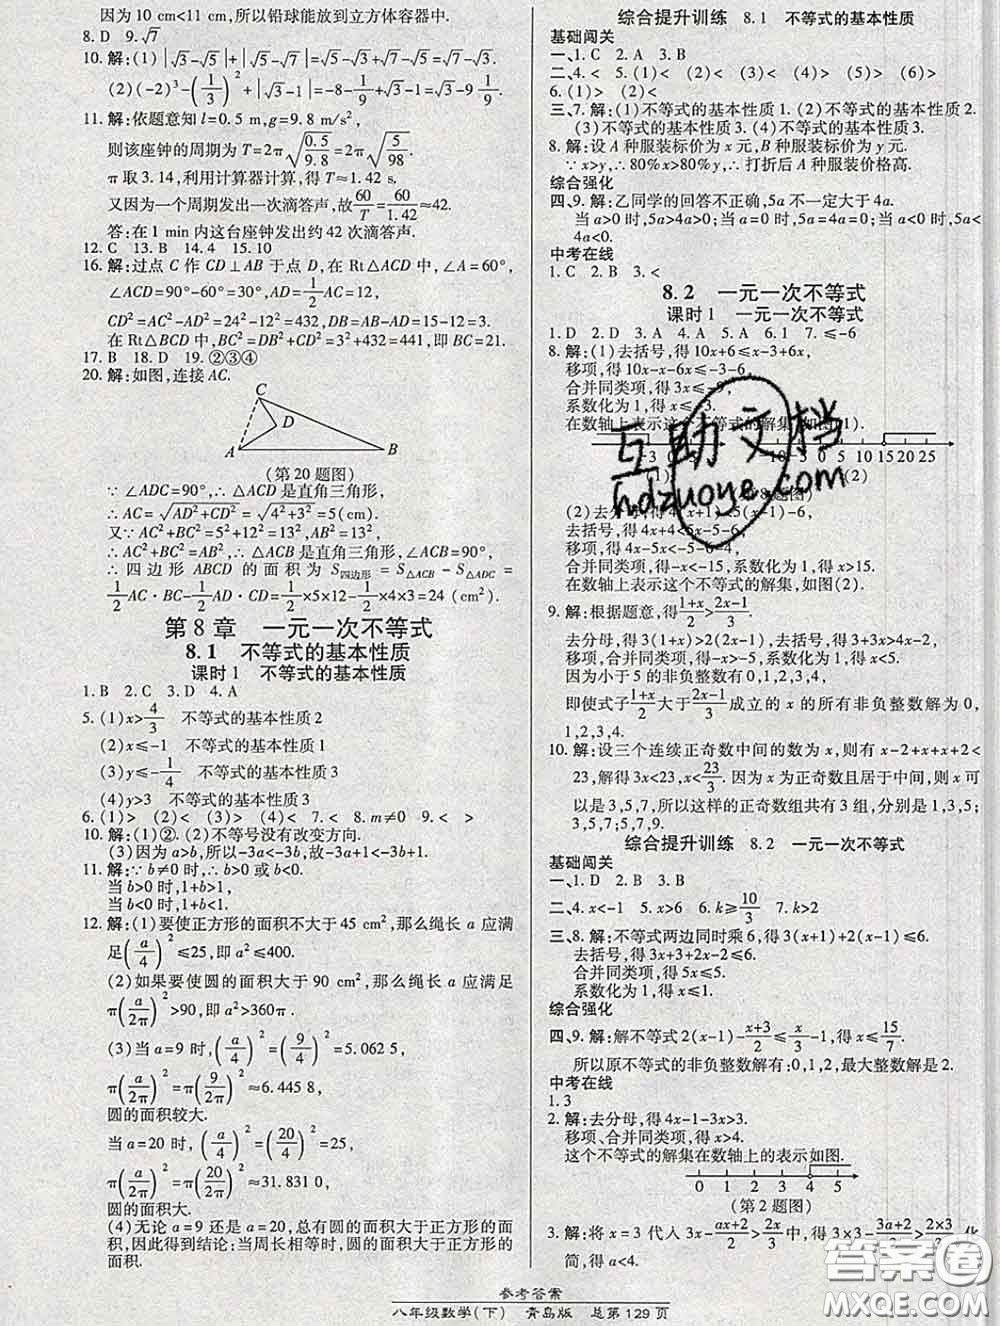 因为 10 cm<11 cm,所以铅球能放到立方体容器中.
8. D　9.√7
10. 解:(1)|√3-√5|+|√5-√7|=√5-√3+√7-√5=√7-√3.
(2)(-2)³-(1/3)²+|√3-1|=-8-1/9+√3-1=√3-9 1/9.
11. 解:依题意知 l=0.5 m,g=9.8 m/s²,
则该座钟的周期为 T=2π√(0.5/9.8)=2π√(5/98).
π 取 3.14,利用计算器计算,得 T≈1.42 s.
又因为一个周期发出一次滴答声,故60/T=60/1.42≈42.
答:在 1 min 内这台座钟发出约 42 次滴答声.
12. C　13. B　14. 4　15. 10
16. 解:过点 C 作 CD⊥AB 于点 D,在 Rt△ACD 中,∠A=60°,
∠ACD=90°-60°=30°,AD=1/2AC=12,
CD²=AC²-AD²=24²-12²=432,DB=AB-AD=15-12=3.
在 Rt△BCD 中,BC²=DB²+CD²=3²+432=441,即 BC=21.
17. B　18. D　19. ②③④
20. 解:如图,连接 AC.
C
D
A B
(第 20 题图)
∵ ∠ADC=90°,∴ △ACD 是直角三角形,
∴ AC=√(AD²+CD²)=√(4²+3²)=5(cm).
又∵ AC²+BC²=5²+12²=13²,AB²=13²,
∴ AC²+BC²=AB²,∴ △ACB 是直角三角形,∠ACB=90°,
∴ 四边形 ABCD 的面积为 S四边形=S△ACB-S△ADC=
1/2AC·BC-1/2AD·CD=1/2×5×12-1/2×4×3=24(cm²).
第 8 章　一元一次不等式
8.1　不等式的基本性质
课时 1　不等式的基本性质
1. B　2. C　3. D　4. A
5. (1)x>4/3　不等式的基本性质 2
(2)x≤-1　不等式的基本性质 1
(3)y≤-1/4　不等式的基本性质 3
(4)y>3　不等式的基本性质 3
6. (1)>　(2)<　(3)>　(4)<　7. <　8. m≠0　9. <　>
10. 解:(1)②. (2)不等号没有改变方向.
(3)因为 a>b,所以-3a<-3b,故-3a+1<-3b+1.
11. 解:∵ b≠0 时,∴ b>0 或 b<0.
当 b>0 时,1+b>1,
当 b<0 时,1+b<1.
12. 解:(1)要使正方形的面积不大于 45 cm²,那么绳长 a 应满
足(a/4)²≤25,即 a²≤400.
(2)如果要使圆的面积大于 90 cm²,那么绳长 a 应满足
π(a/2π)²>90,即 a²>360π.
(3)当 a=9 时,(a/4)²=(9/4)²=5.062 5,
π(a/2π)²=π(9/2π)²≈6.445 8,
圆的面积较大.
当 a=20 时,(a/4)²=(20/4)²=25,
π(a/2π)²=π(20/2π)²≈31.831 0,
圆的面积大.
(4)无论 a=9 还是 a=20,总有圆的面积大于正方形的面
积,因此得到结论:当周长相等时,圆的面积大于正方形的
面积.
综合提升训练　8.1　不等式的基本性质
基础闯关
一、1. C　2. A　3. B
二、4. <　5. (1)<　(2)<　(3)<　(4)>　(5)>　(6)>
6. (1)>　(2)<
三、7. 解:(1)不等式的基本性质 1. (2)不等式的基本性质 2.
(3)不等式的基本性质 3. (4)不等式的基本性质 3.
8. 解:设 A 种服装标价为 x 元,B 种服装标价为 y 元.
∵ x>y,∴ 80%x>80%y,∴ 打折后 A 种服装价格高.
综合强化
四、9. 解:乙同学的回答不正确,5a 不一定大于 4a.
当 a>0 时,5a>4a>0;当 a=0 时,5a=4a=0;当 a<0 时,5a<
4a<0.
中考在线
1. C　2. B　3. <
8.2　一元一次不等式
课时 1　一元一次不等式
1. D　2. D　3. A　4. A　5. A　6. 1　7. ≤-6
8. 解:(1)去括号,得 10x+6≤x-3+6x,
移项,得 10x-x-6x≤-3-6,
合并同类项,得 3x≤-9,
系数化为 1,得 x≤-3.
在数轴上表示这个不等式的解集,如图(1).
-3 0 3 -10 -5 0 5 10 15 20 25
(2)
(第 8 题图)
(2)去分母,得 4(x+1)<5(x-1)-6,
去括号,得 4x+4<5x-5-6,
移项,得 4x-5x<-5-6-4,
合并同类项,得-x<-15,系数化为 1,得 x>15.
在数轴上表示这个不等式的解集,如图(2).
9. 解:根据题意,得(1+x)/2>(2x-1)/3.
去分母,得 3(1+x)>2(2x-1),去括号,得 3+3x>4x-2.
移项、合并同类项,得-x>-5,系数化为 1,得 x<5.
因为小于 5 的非负整数有 0,1,2,3,4,
即使式子(1+x)/2大于(2x-1)/3成立的 x 的所有非负整数为 0,
1,2,3,4.
10. 解:设三个连续正奇数中间的数为 x,则有 x-2+x+x+2<
23,解得 3x<23,x<23/3. 因为 x 为正奇数且居于中间,则 x 可
以是 3,5,7,所以这样的正奇数组共有 3 组,分别是 1,3,5;
3,5,7;5,7,9.
综合提升训练　8.2　一元一次不等式
基础闯关
一、1. D　2. B　3. A
二、4. x<-1　5. x>6　6. k≥10/3　7. k>2
三、8. 解:不等式两边同时乘 6,得 3(x+1)+2(x-1)≤6.
去括号,得 3x+3+2x-2≤6.
合并同类项,得 5x≤5.
系数化为 1,得 x≤1.
综合强化
四、9. 解:解不等式 2(x-1)-(x+3)/2≤x/3-1,得 x≤15/7.
所以原不等式的非负整数解有:0,1,2,最大整数解是 2.
中考在线
1. 3
2. 解:去分母,得 4x-1-3x>3.
移项、合并同类项,得 x>4.
这个不等式的解集在数轴上的表示如图.
0 1 2 3 4 5
(第 2 题图)
3. 解:将 x=3 代入 3x-(ax+2)/2>2x/3中,得 3×3-(3a+2)/2>(2×3)/3,化
简,得 a<4.
参考答案
八年级数学(下)　青岛版　总第 129 页
互助文档
hdzuoye.com
答案圈
MXQE.COM